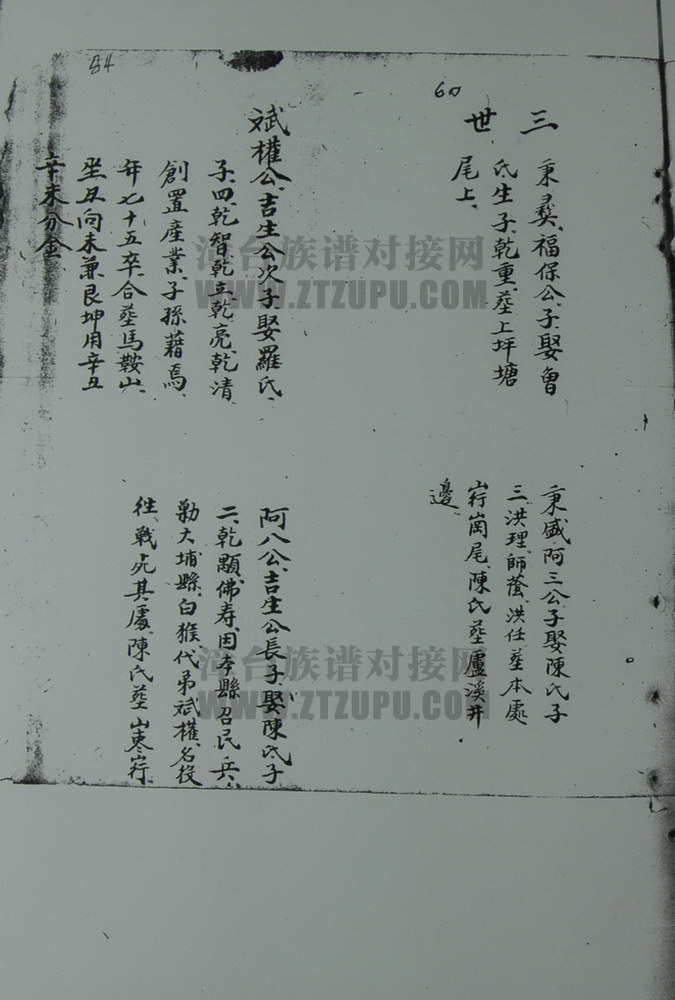 84
60
三世
秉彛、福保公、子、娶曾
氏、生子、乾重、塟上坪塘
尾上、
秉盛、阿三公子、娶陳氏、子
三、洪理、師蔭、洪任、塟本處
崗尾、陳氏塟盧溪井
邊、
斌權公、吉生公次子、娶羅氏、
子、四、乾智、乾立、乾亮、乾清、
創置產業、子孫藉焉、
年七十五卒、合塟馬鞍山、
坐丑向未兼艮坤用辛丑
辛未分金
阿八公、吉生公長子、娶陳氏、子
二、乾顯、佛寿、因本縣召民兵、
勦大埔縣、白猴、代弟斌權、名役
往、戰死其處、陳氏塟
台族谱对接网
WWW.ZTZUPU.COM
台族谱对接网
WWW.ZTZUPU.COM